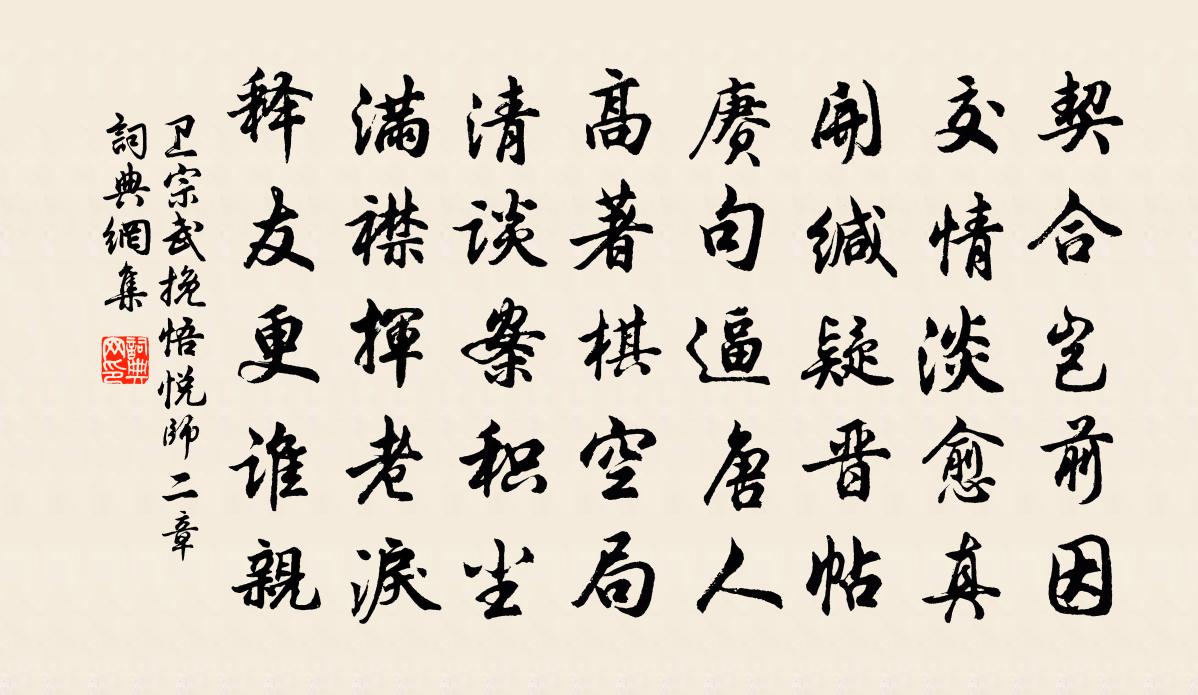 契合岂前因
交情淡愈真
開缄疑晋帖
赓句逼唐人
高著棋空局
清谈案积尘
满襟揮老淚
释友更谁親
卫宗武挽悟悦師二章
詞典網集
詞典网印